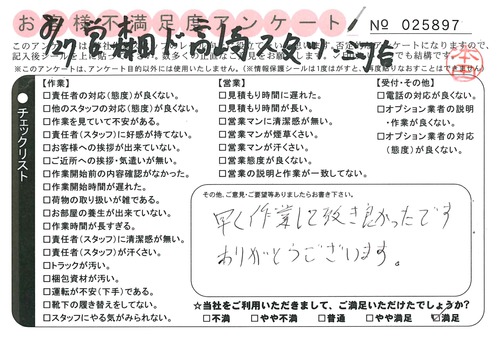 お客様不満足度アンケート
№ 025897
チェックリスト
【作業】
□責任者の対応(態度)が良くない。
□他のスタッフの対応(態度)が良くない。
□作業を見ていて不安がある。
□責任者(スタッフ)に好感が持てない。
□お客様への挨拶が出来ていない。
□ご近所への挨拶・気遣いが無い。
□作業開始前の内容確認がなかった。
□作業開始時間が遅れた。
□荷物の取り扱いが雑である。
□お部屋の養生が出来ていない。
□作業時間が長すぎる。
□責任者(スタッフ)に清潔感が無い。
□責任者(スタッフ)が汗くさい。
□トラックが汚い。
□梱包資材が汚い。
□運転が不安(下手)である。
□靴下の履き替えをしてない。
□スタッフにやる気がみられない。
【営業】
□見積もり時間に遅れた。
□見積もり時間が長い。
□営業マンに清潔感が無い。
□営業マンが煙草くさい。
□営業マンが汗くさい。
□営業態度が良くない。
□営業の説明と作業が一致してない。
【受付・その他】
□電話の対応が良くない。
□オプション業者の説明・作業が良くない。
□オプション業者の対応(態度)が良くない。
その他、ご意見・ご要望等ありましたらお書き下さい。
早く作業して頂き良かったです
ありがとうございます。
☆当社をご利用いただきまして、ご満足いただけたでしょうか?
□不満 □やや不満 □普通 □やや満足 □満足